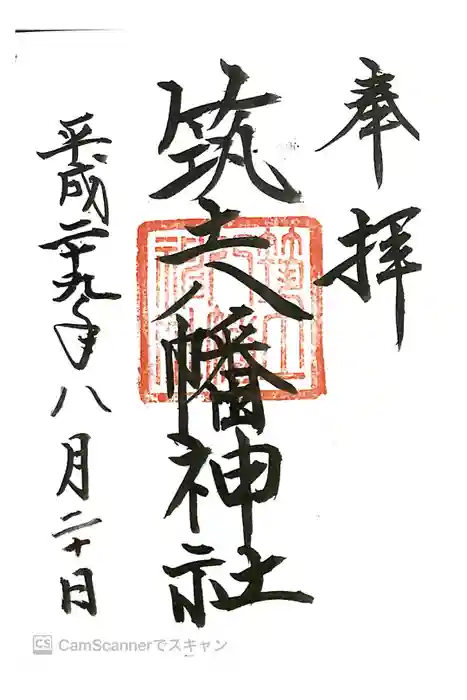 奉拝
筑土八幡神社
平成二十九年八月二十日
CS CamScannerでスキャン